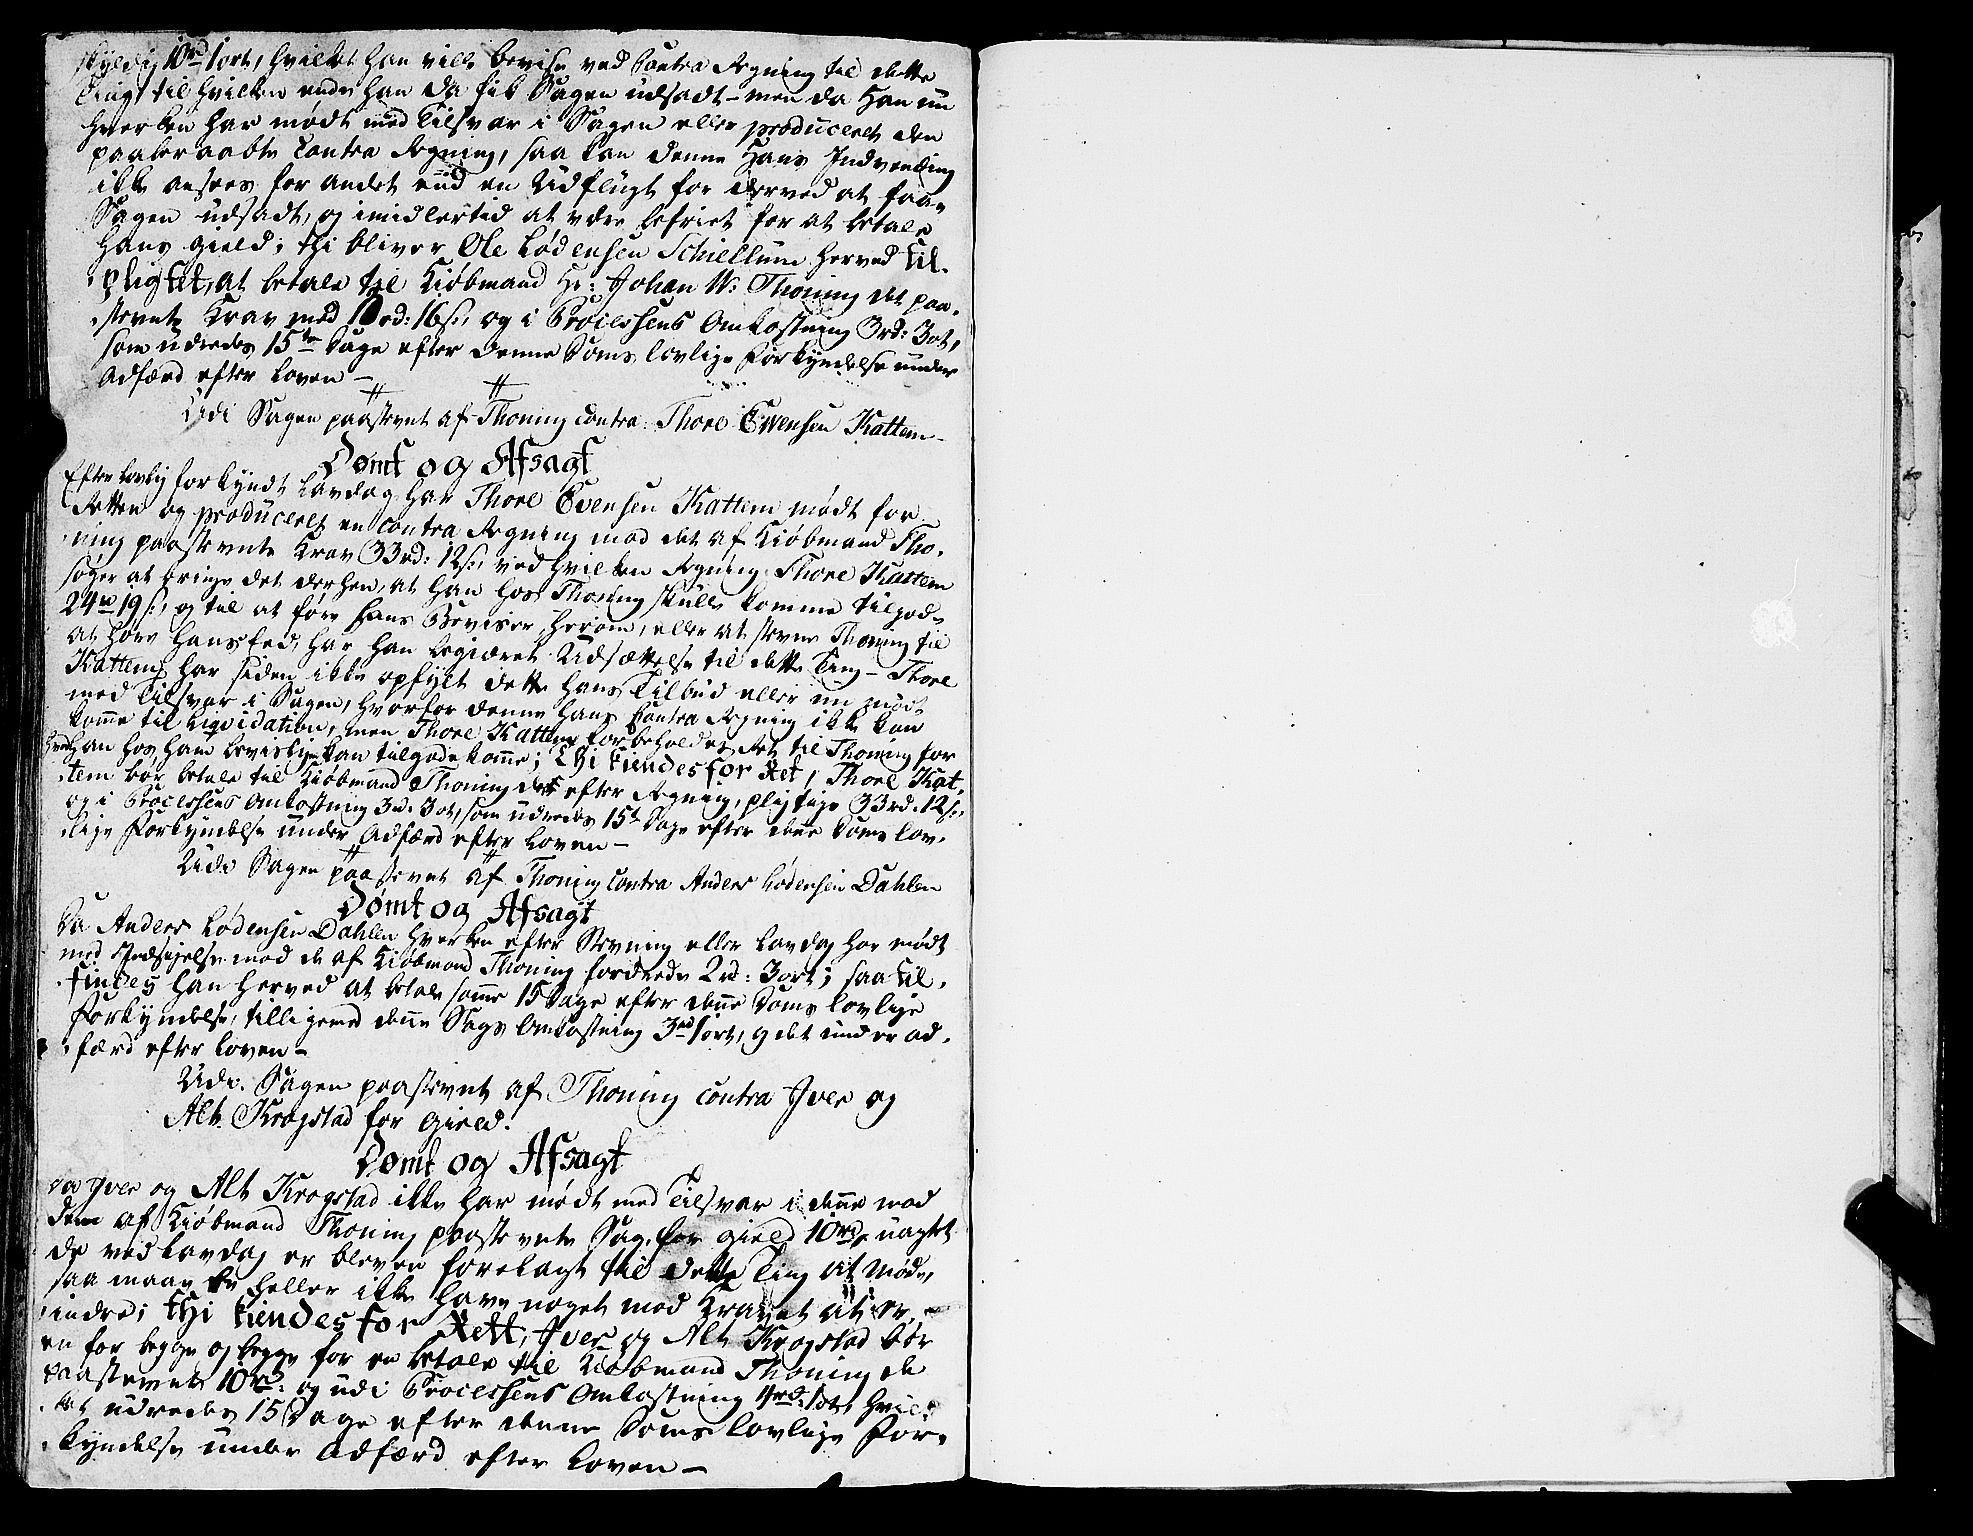 skyldig 10rd 1ort, hvilket han vilde bevise ved Contra Regning til dette
Ting, til hvilken ende han da fik Sagen udsadt – men da Han nu
hverken har mødt med Tilsvar i Sagen eller produceret den
paaberaabte Contra Regning, saa kan denne Hans Indvending
ikke ansees for andet end en Udflugt for derved at faae
Sagen udsadt, og imidlertid at være befriet for at betale
Hans Gield; thi bliver Ole Lødensen Schiellum herved til-
pligtet, at betale til Kiøbmand Hr: Johan W: Thoning det paa-
stevnte Krav med 10rd: 16s:, og i Processens Omkostning 3rd: 3ot,
som udredes 15ten Dage efter denne Doms lovlige Forkyndelse under
Adfærd efter Loven –
Udi Sagen paastevnt af Thoning contra Thore Evensen Kattem –
Dømt og Afsagt
Efter lovlig forkyndt Lavdag har Thore Evensen Kattem mødt for
Retten og produceret en contra Regning mod det af Kiøbmand Tho-
ning paastevnte Krav 33rd: 12s:, ved hvilken Regning Thore Kattem
søger at bringe det derhen, at han hos Thoning skulle komme tilgode
24rd 19s:, og til at føre hans Beviser herom, eller at stevne Thoning til
at høre hans Eed, har han begiæret Udsættelse til dette Ting – Thore
Kattem har siden ikke opfylt dette hans Tilbud eller nu mødt
med Tilsvar i Sagen, hvorfor denne hans Contra Regning ikke kan
komme til Liqvidation, men Thore Kattem forbeholdes Ret til Thoning for
hvad han hos ham bevislig kan tilgodekomme; Thi kiendes for Ret, Thore Kat-
tem bør betale til Kiøbmand Thoning det efter Regning pligtige 33rd. 12s:,
og i Processens Omkostning 3rd. 3ot, som udredes 15t Dage efter denne Doms lov-
lige Forkyndelse under Adfærd efter Loven –
Udi Sagen paastevnt af Thoning contra Anders Lødensen Dahlen
Dømt og Afsagt
Da Anders Lødensen Dahlen hverken efter Stevning eller Lavdag har mødt
med Indsigelse mod de af Kiøbmand Thoning fordrede 2rd: 3ort; saa til-
findes han herved at betale samme 15 Dage efter denne Doms lovlige
Forkyndelse, tilligemed denne Sags Omkostning 3rd 1ort, og det under ad-
færd efter Loven –
Udi Sagen paastevnt af Thoning contra Iver og
Alt Krogstad for Gield.
Dømt og Afsagt
Da Iver og Alt Krogstad ikke har mødt med Tilsvar i denne mod
dem af Kiøbmand Thoning paastevnte Sag for Gield 10rd, uagtet
de ved Lavdag er bleven forelagt til dette Ting at møde,
saa maae de heller ikke have noget mod Kravet at er-
indre; thi kiendes for Rett, Iver og Alt Krogstad bør
en for begge og begge for en betale til Kiøbmand Thoning de
paastevnte 10rd: og udi Processens Omkostning 4rd: 1ot, hvil-
ket udredes 15 Dage efter denne Doms lovlige For-
kyndelse under Adfærd efter Loven –